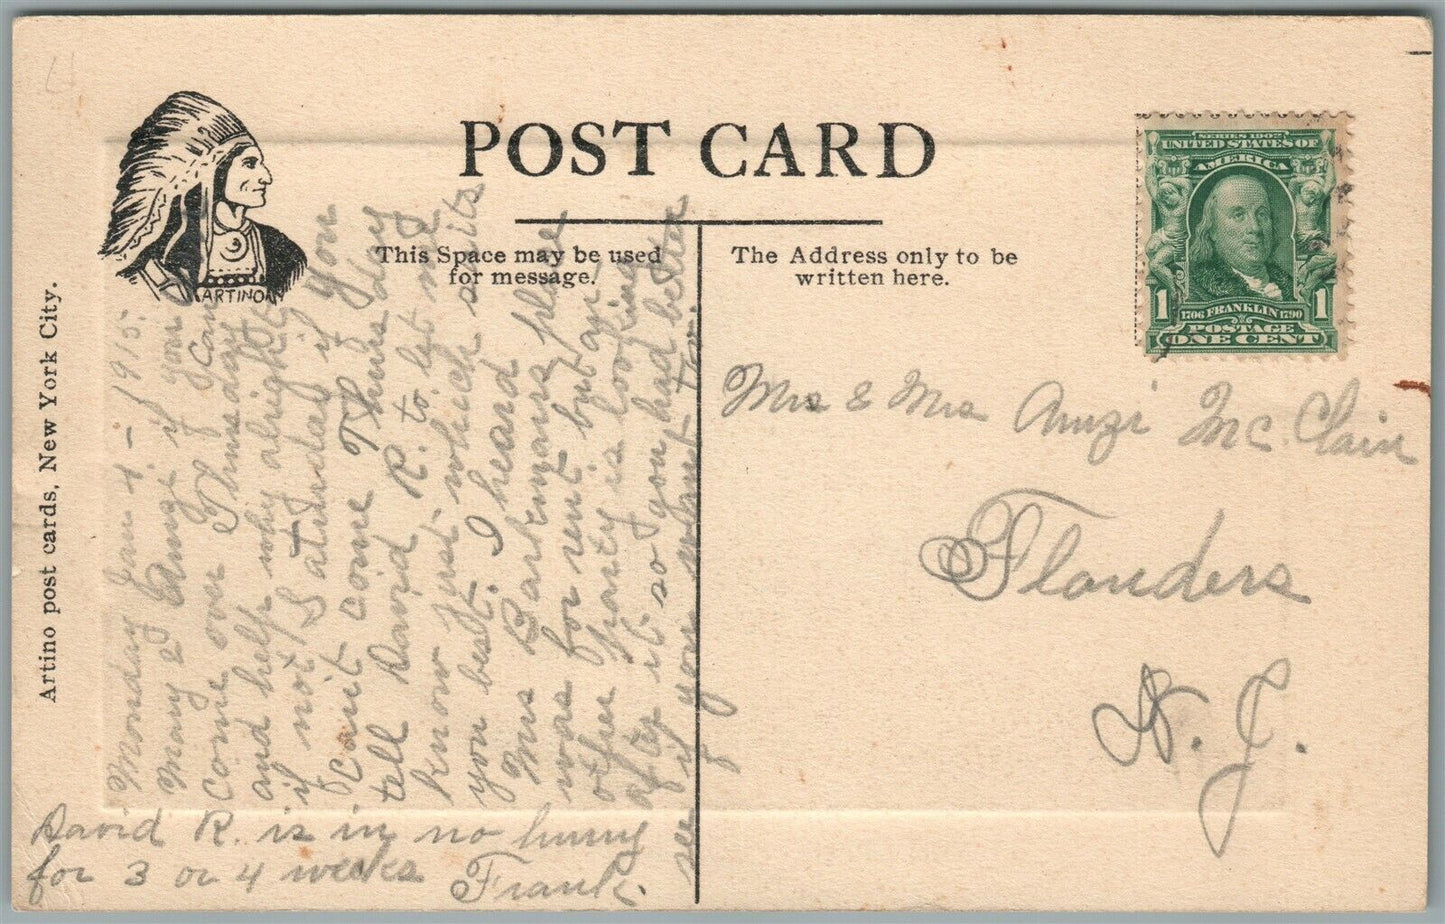 POST CARD
This Space may be used
for message.
The Address only to be
written here.
ARTINO
Artino post cards, New York City.
SERIES 1902
UNITED STATES OF
AMERICA
1706 FRANKLIN 1790
POSTAGE
ONE CENT
1 1
Monday Jan 4 - 1915.
Mary & Amzi if you
come over Thursday
and help why alright
if not Saturday if you
can't come Thursday
tell David R. to let me
know just which suits
you best. I heard
Mrs Bartmans place
was for rent but an-
other party is looking
after it so you had better
see if you want to.
David R. is in no hurry
for 3 or 4 weeks
Frank.
Mrs & Mrs Amzi Mc Clain
Flanders
N. J.